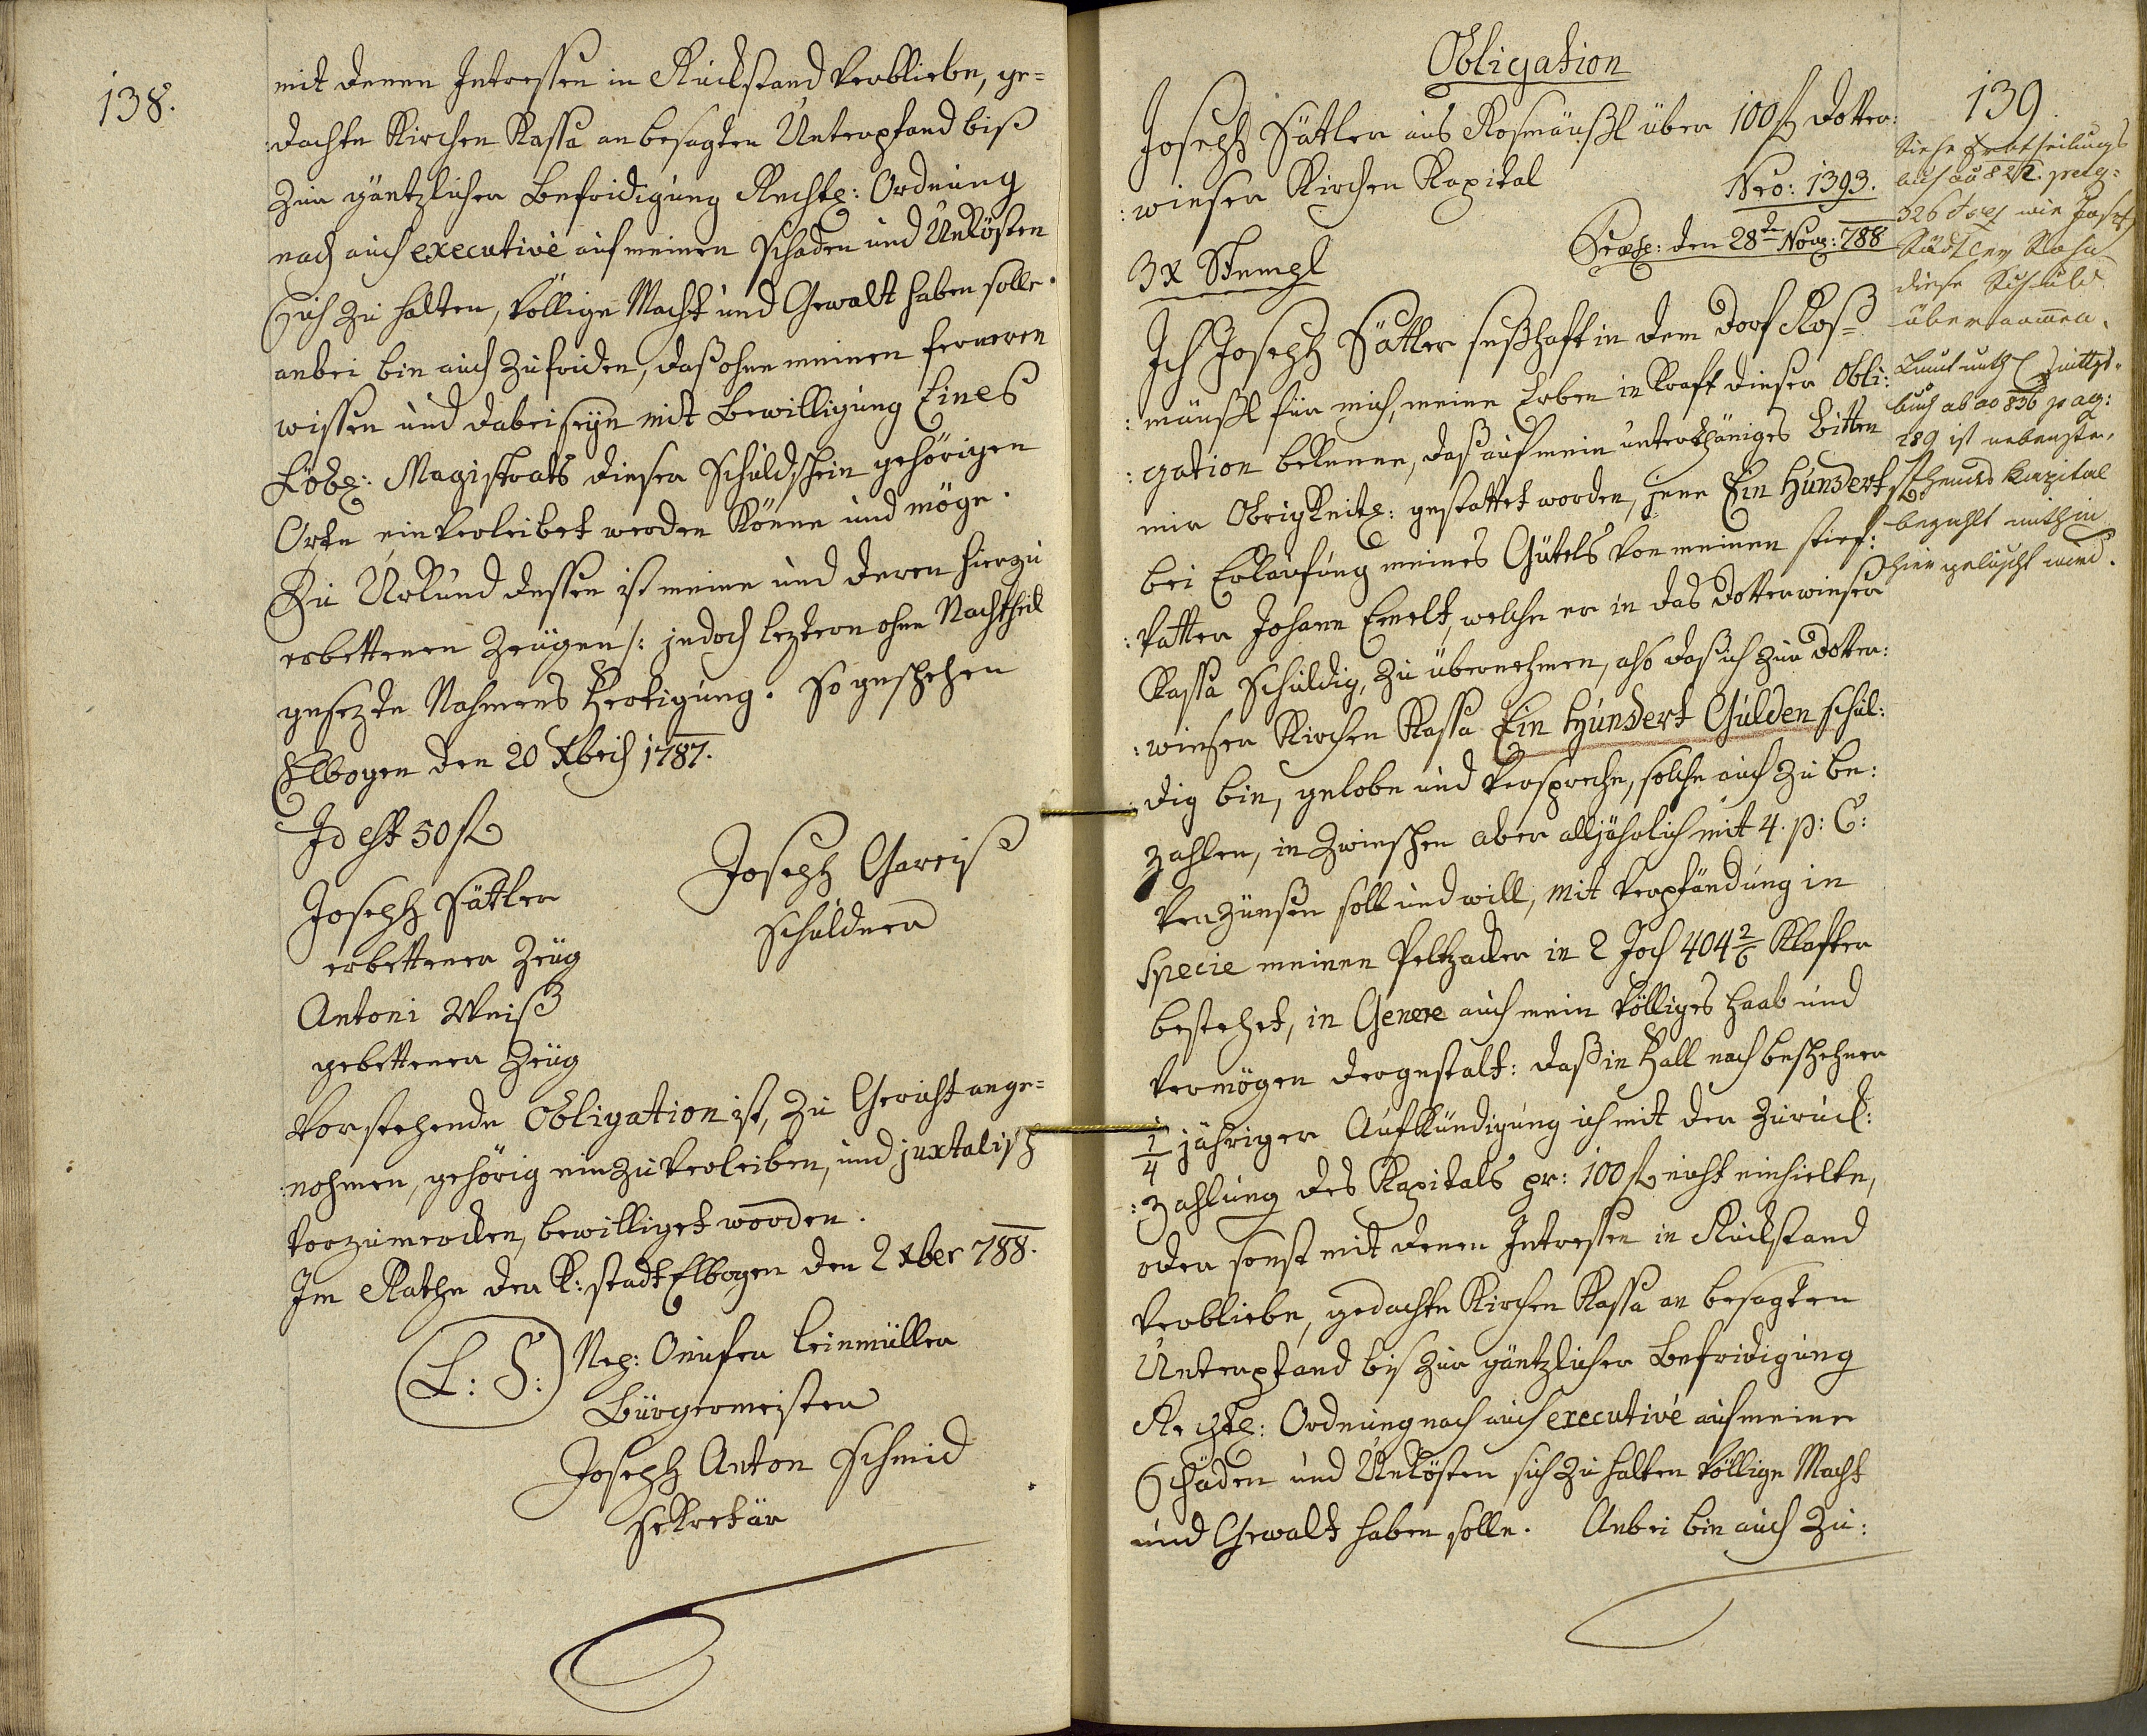 138.
mit denen Intressen in Rückstand verbliebe, ge=
:dachte Kirchen Kassa an besagten Unterpfand biß
zur gäntzlicher Befridigung Rechtl: Ordnung
nach auch executivè auf meinen Schaden und Unkösten
sich zu halten, völlige Macht und Gewalt haben solle.
anbei bin auch zufriden, daß ohne meinen ferneren
wissen und dabeiseyn mit Bewilligung Eines
Löbl: Magistrats dieser Schuldschein gehörigen
Orte einverleibet werden könne und möge.
Zu Urkund dessen ist meine und deren hierzu
erbettenen Zeügen /: jedoch leztern ohne Nachtheil
gesezte Nahmens Fertigung. So geschehen
Elbogen den 20 Xbris 1787.
Id est 50 fl
Joseph Gareis
Schuldner
Joseph Sättler
erbettener Zeüg
Antoni Weiß
gebettener Zeüg
Vorstehende Obligation ist, zu Gericht ange=
:nohmen, gehörig einzuverleiben, und juxtalisch
vorzumerken, bewilliget worden.
Im Rathe der K: Stadt Elbogen den 2 Xber 788.
(L: S:) Nep: Leinmüller
Bürgermeister
Joseph Anton Schmid
Sekretär
139.
Obligation
Joseph Sättler aus Rosmäußl über 100 fl Dotter:
:wieser Kirchen Kapital
Nro: 1393.
3 x Stempl
Praes: den 28ten Nov: 788
Ich Joseph Sättler seßhaft in dem Dorf Roß=
:mäußl für mich, meine Erben in Kraft dieser Obli:
:gation bekenne, daß auf mein unterthäniges Bitten
mir Obrigkeitl: gestattet worden, jene Ein Hundert fl
bei Erkaufung meines Gütels von meinen Stief:
:vatter Johann Emelt, welche er in das Dotterwieser
Kassa schuldig, zu übernehmen, also daß ich zur Dotter:
:wieser Kirchen Kassa Ein Hundert Gulden schul:
:dig bin, gelobe und verspreche, solche auch zu be:
zahlen, in zwischen aber alljährlich mit 4. p: C:
verzünsen soll und will, mit Verpfändung in
Specie meinen Peltzacker in 2 Joch 404 2/6 Klafter
bestehet, in Genere auch mein völliges Haab und
Vermögen dergestalt: daß in Fall nach beschehener
1/4 jähriger Aufkündigung ich mit der Zurück:
:zahlung des Kapitals pr: 100 fl nicht einhielte,
oder sonst mit denen Intressen in Rückstand
verbliebe, gedachte Kirchen Kassa an besagten
Unterpfand bis zur gäntzlicher Befridigung
Rechtl: Ordnung nach auch executivè auf meine
Schäden und Unkösten sich zu halten völlige Macht
und Gewalt haben solle. Anbei bin auch zu:
Siehe Erbtheilungs
buch pag:
326 wie Joseph
Sättler Sohn
diese Schuld
übernommen.
Laut
buch ab ao 836 pag:
289 ist nebenste-
hendes Kapital
bezahlt mithin
hier gelöscht wird.